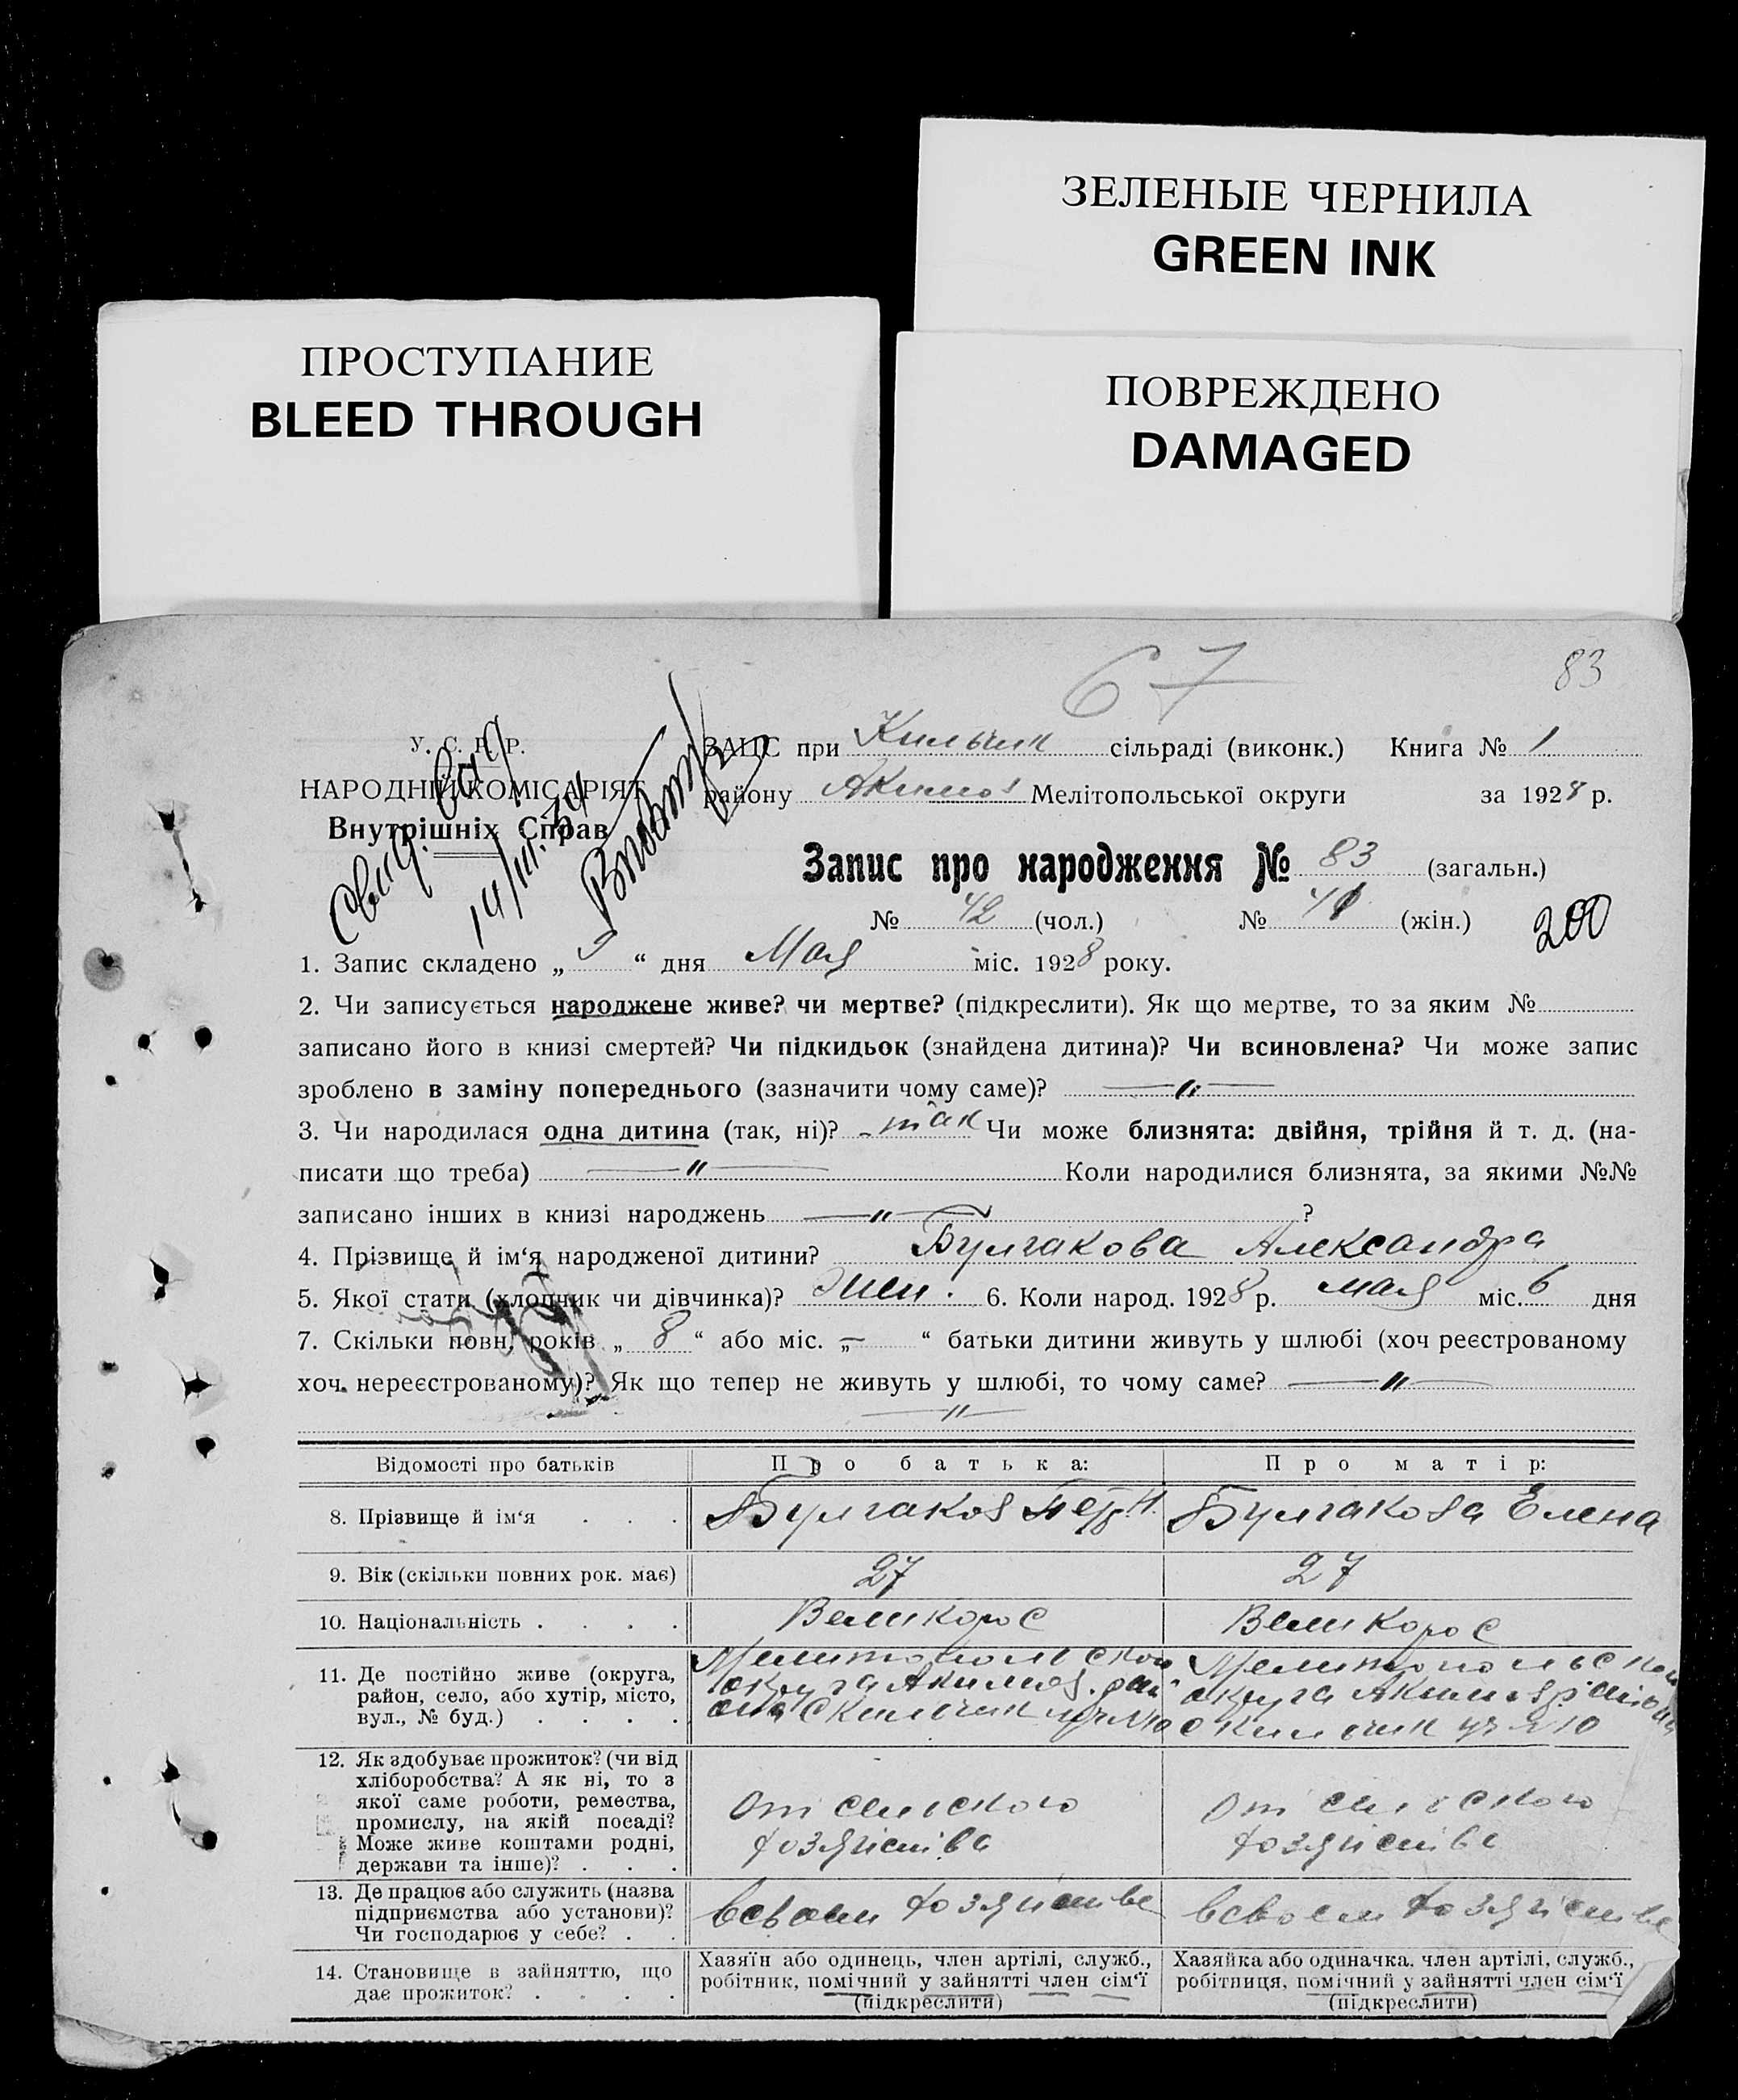 ЗЕЛЕНЫЕ ЧЕРНИЛА
GREEN INK
ПРОСТУПАНИЕ
BLEED THROUGH
ПОВРЕЖДЕНО
DAMAGED
67
83
У. С. Р. Р.
НАРОДНІЙ КОМІСАРІЯТ
Внутрішніх Справ
14/III 34
ЗАПС при Кильчик сільраді (виконк.) Книга № 1
району Акимов Мелітопольської округи за 1928 р.
Запис про народження № 83 (загальн.)
№ 42 (чол.) № 41 (жін.)
200
1. Запис складено „ 9 “ дня Мая міс. 1928 року.
2. Чи записується народжене живе? чи мертве? (підкреслити). Як що мертве, то за яким №
записано його в книзі смертей? Чи підкидьок (знайдена дитина)? Чи всиновлена? Чи може запис
зроблено в заміну попереднього (зазначити чому саме)? — „ —
3. Чи народилася одна дитина (так, ні)? так Чи може близнята: двійня, трійня й т. д. (на-
писати що треба) — „ — Коли народилися близнята, за якими №№
записано інших в книзі народжень — „ — ?
4. Прізвище й ім‘я народженої дитини? Булгакова Александра
5. Якої стати (хлопчик чи дівчинка)? Жен. 6. Коли народ. 1928 р. мая міс. 6 дня
7. Скільки повн. років „ 8 “ або міс. „ — “ батьки дитини живуть у шлюбі (хоч реєстрованому
хоч нереєстрованому)? Як що тепер не живуть у шлюбі, то чому саме? — „ —
— „ —
Відомості про батьків Про батька: Про матір:
8. Прізвище й ім‘я . . . Булгаков Петр Н. Булгакова Елена
9. Вік (скільки повних рок. має) 27 27
10. Національність . . . . Великорос Великорос
11. Де постійно живе (округа, Мелитопольской Мелитопольской
район, село, або хутір, місто, округа Акимов. рай округа Акимов района
вул., № буд.) . . . . с Кильчик № 10 с Кильчик № 10
12. Як здобуває прожиток? (чи від
хліборобства? А як ні, то з
якої саме роботи, ремества, От сельского От сельского
промислу, на якій посаді?
Може живе коштами родні, хозяйства хозяйства
держави та інше)? . . .
13. Де працює або служить (назва
підприємства або установи)? всвоем хозяйстве всвоем хозяйстве
Чи господарює у себе? . .
14. Становище в зайняттю, що Хазяїн або одинець, член артілі, служб., Хазяйка або одиначка. член артілі, служб.,
дає прожиток? . . . . робітник, помічний у зайнятті член сім‘ї робітниця, помічний у зайнятті член сім‘ї
(підкреслити) (підкреслити)